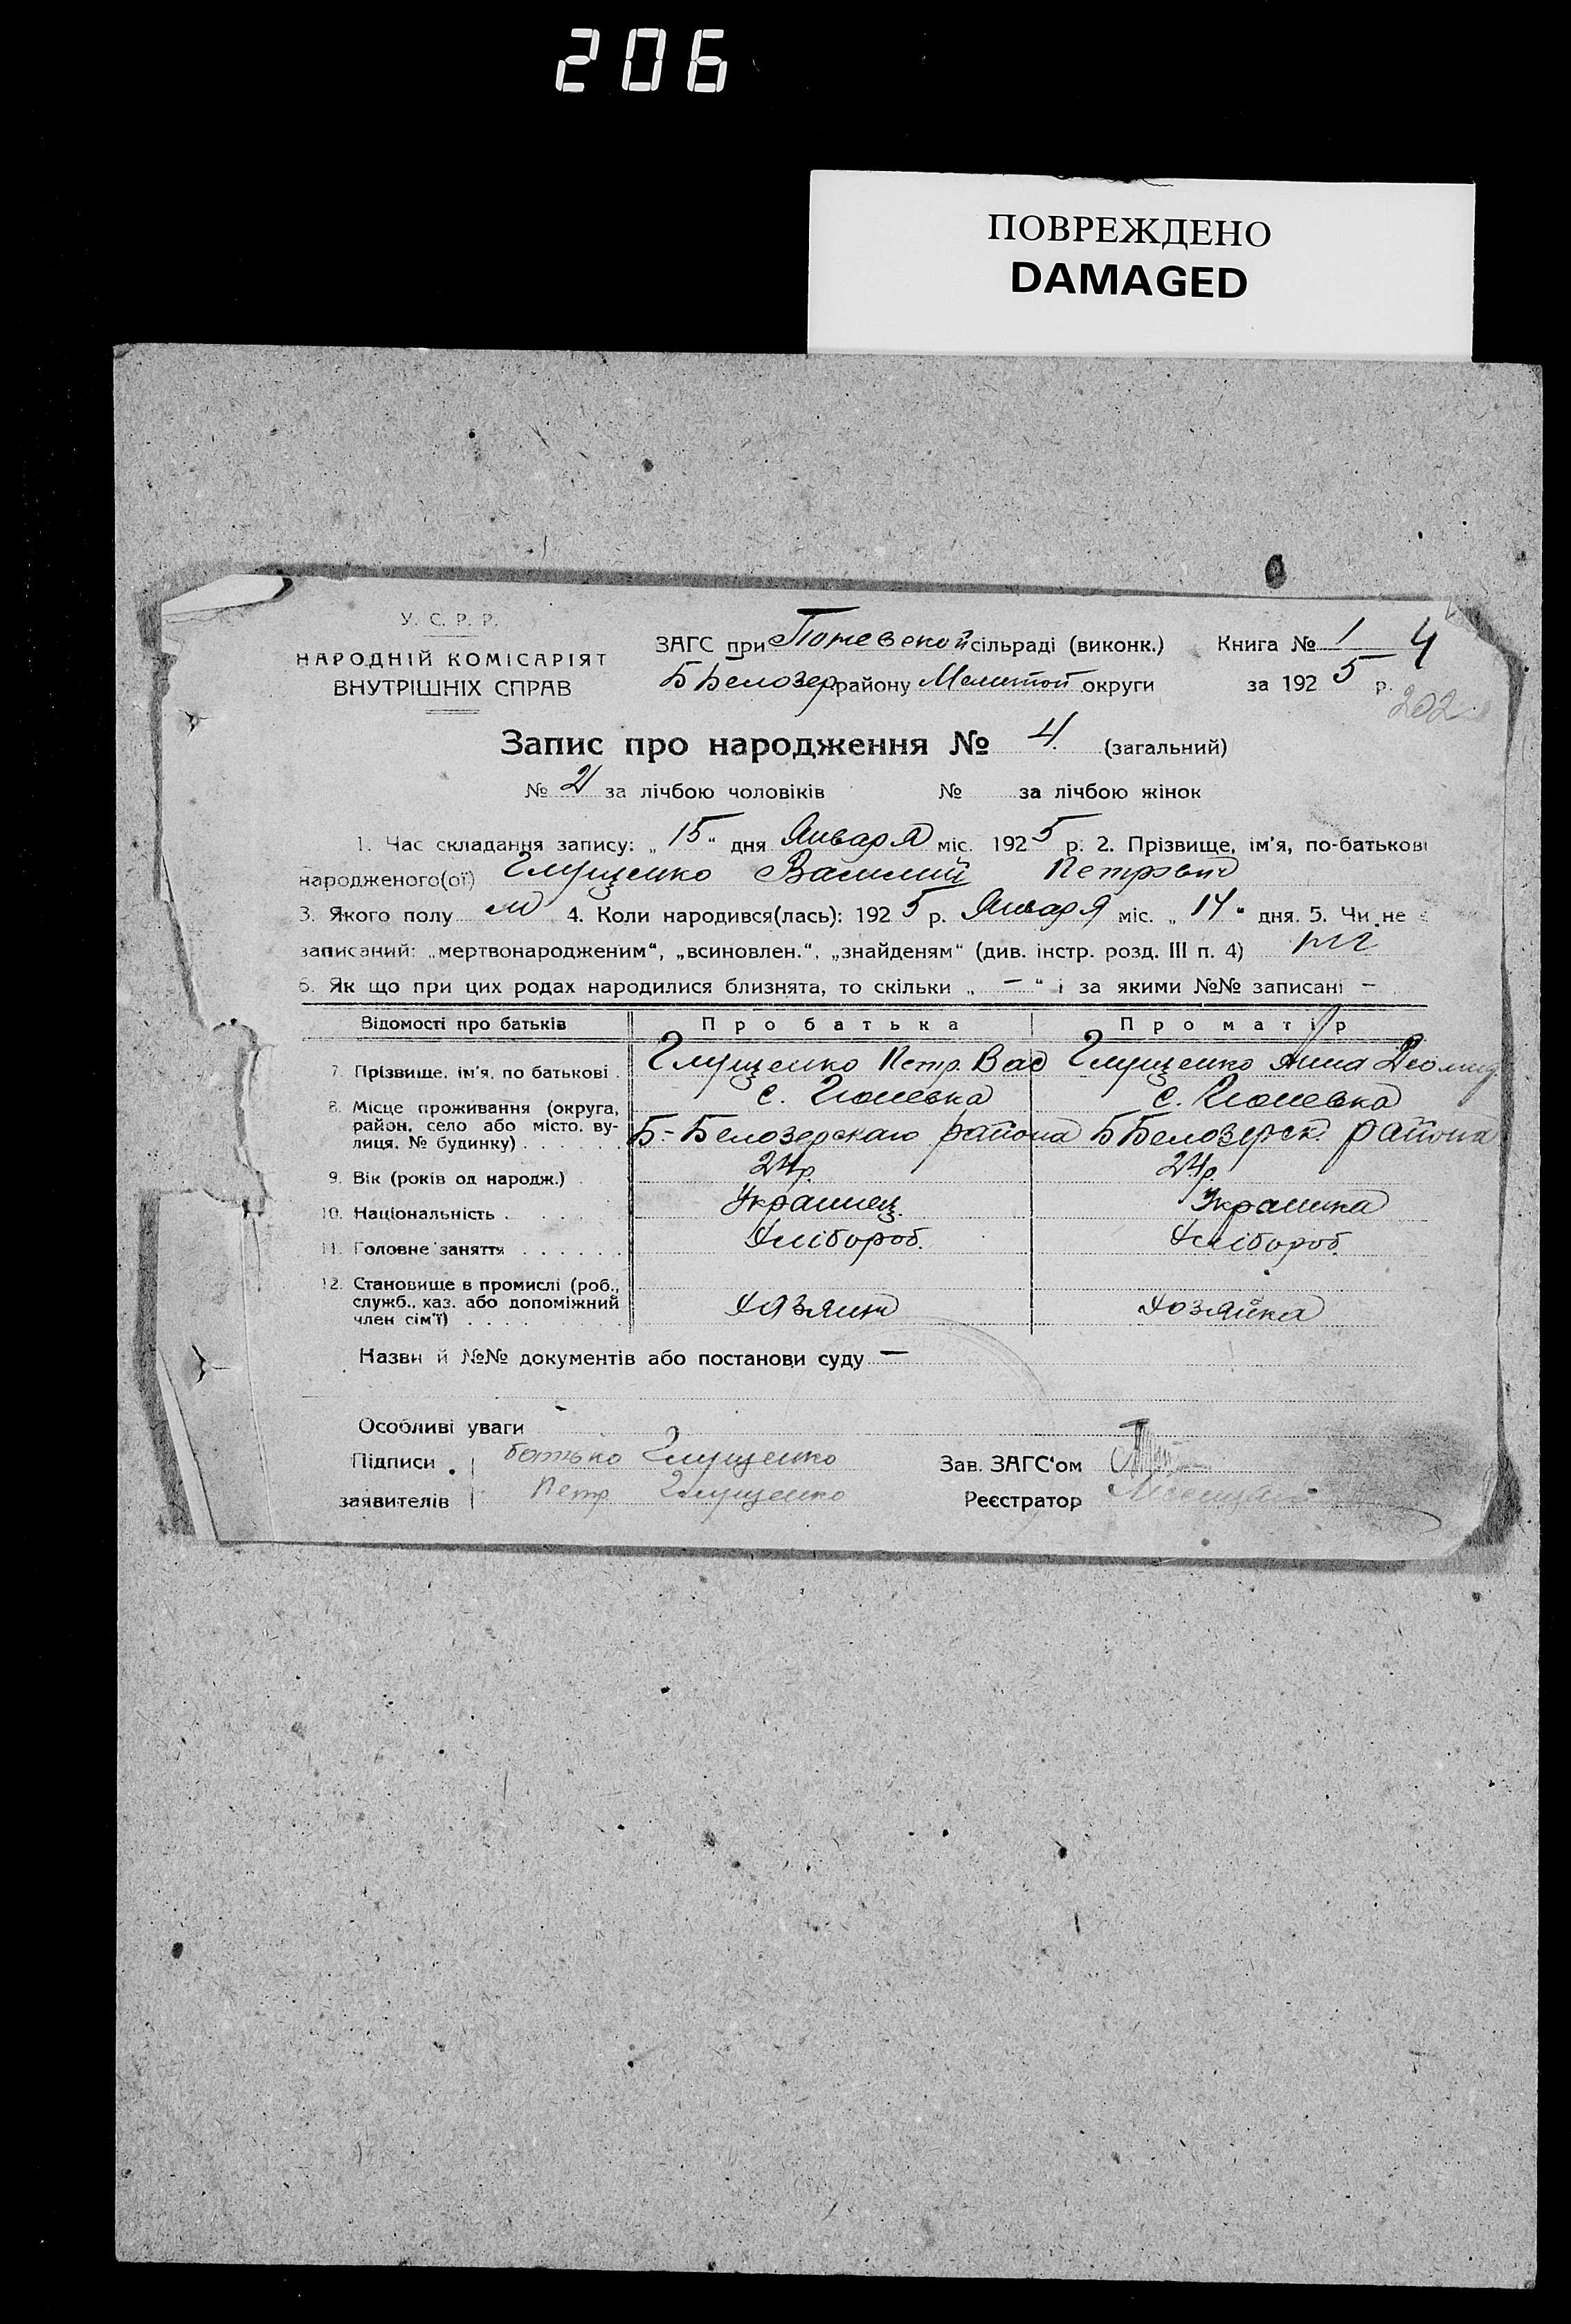 206
ПОВРЕЖДЕНО
DAMAGED
У. С. Р. Р.
НАРОДНІЙ КОМІСАРІЯТ
ВНУТРІШНІХ СПРАВ
ЗАГС при сільраді (виконк.) Книга № 1 4
Б Белозер району Мелитоп округи за 1925 р.
202
Запис про народження № 4. (загальний)
№ 2 за лічбою чоловіків № за лічбою жінок
1. Час складання запису: „15" дня Января міс. 1925 р. 2. Прізвище, ім'я, по-батькові
народженого(ої) Глущенко Василий Петрович
3. Якого полу м 4. Коли народився(лась): 1925 р. Января міс. „14" дня. 5. Чи не є
записаний: „мертвонародженим", „всиновлен.", „знайденям" (див. інстр. розд. III п. 4)
6. Як що при цих родах народилися близнята, то скільки „ — " і за якими №№ записані —
Відомості про батьків Про батька Про матір
7. Прізвище, ім'я, по батькові . Глущенко Петр. Вас Глущенко Анна
8. Місце проживання (округа, район, село або місто, вулиця, № будинку) с. с.
Б.-Белозерскаго района Б Белозерск. района
9. Вік (років од народж.) 24р. 24р.
10. Національність Украинец. Украинка
11. Головне заняття Хлібороб. Хлібороб.
12. Становище в промислі (роб.,
служб., хаз. або допоміжний
член сім'ї) Хазяин Хозяйка
Назви й №№ документів або постанови суду —
Особливі уваги
Підписи батько Глущенко Зав. ЗАГС'ом
заявителів Петр Глущенко Реєстратор